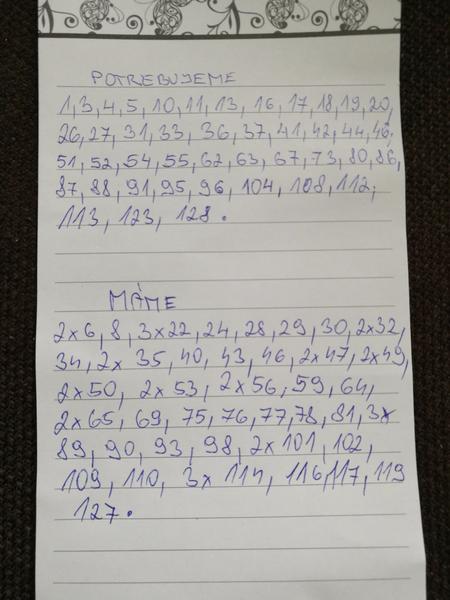 POTREBUJEME
1,3,4,5,10,11,13,16,17,18,19,20,
26,27,31,33,36,37,41,42,44,46,
51,52,54,55,62,63,67,73,80,86,
87,88,91,95,96,104,108,112,
113,123,128.
MÁME
2x6,8,3x22,24,28,29,30,2x32,
34,2x35,40,43,46,2x47,2x49,
2x50,2x53,2x56,59,64,
2x65,69,75,76,77,78,81,3x
89,90,93,98,2x101,102,
109,110,3x114,116,117,119
127.